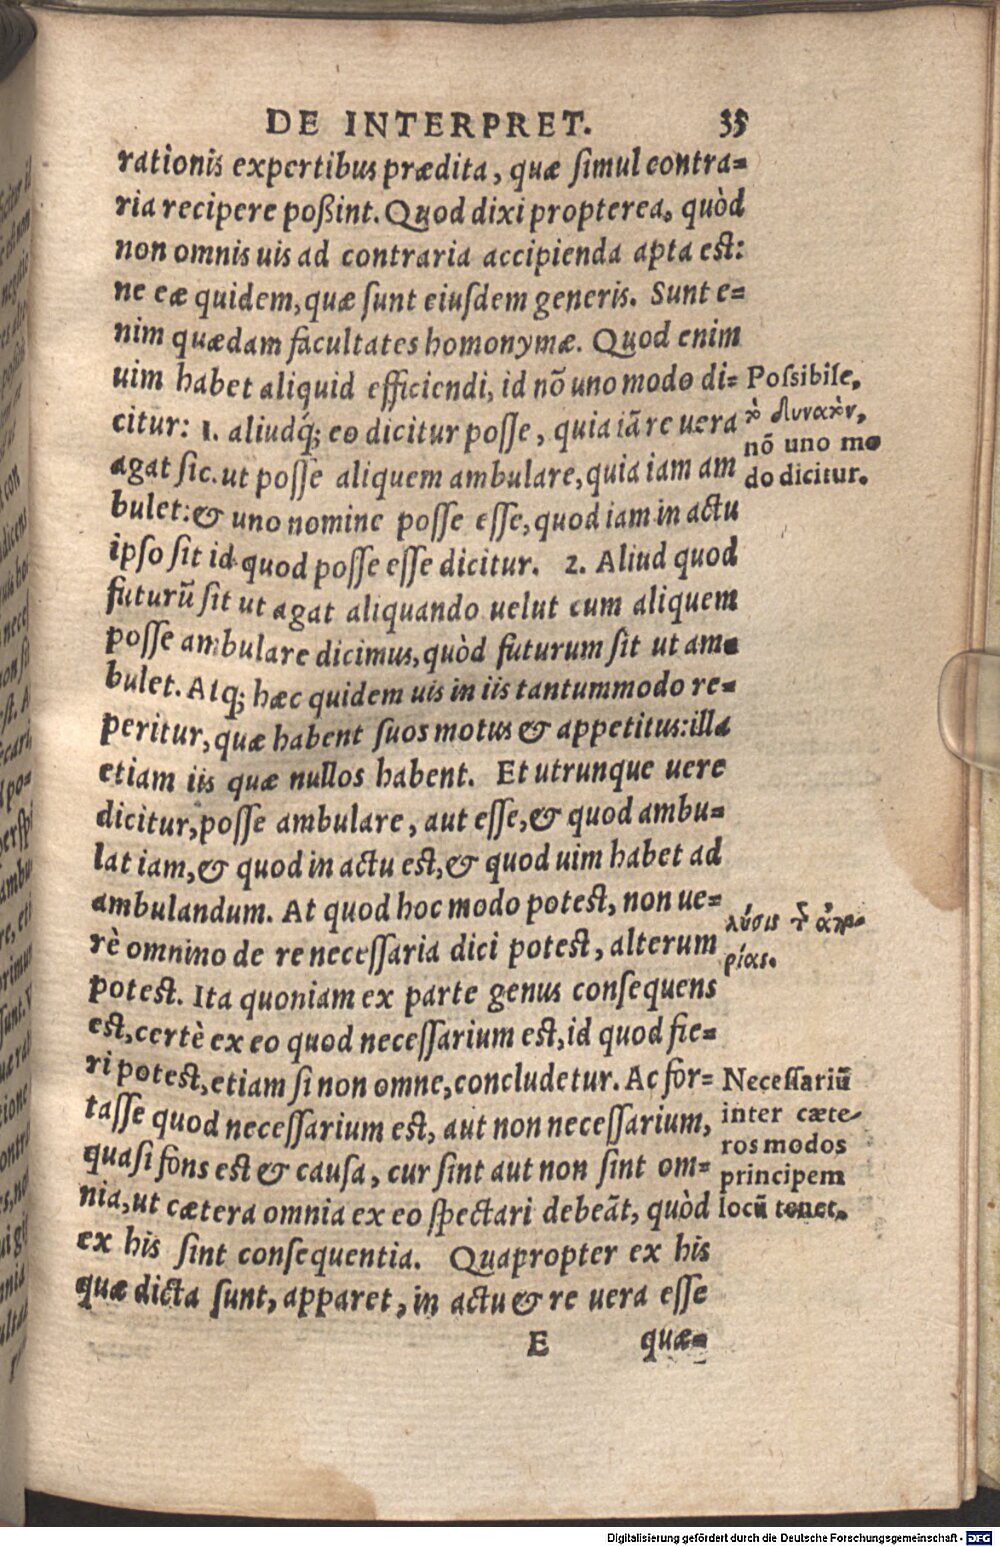 DE INTERPRET. 35
rationis expertibus prædita, quæ simul contra-
ria recipere poßint. Quod dixi propterea, quòd
non omnis uis ad contraria accipienda apta est:
ne eæ quidem, quæ sunt eiusdem generis. Sunt e-
nim quædam facultates homonymæ. Quod enim
uim habet aliquid efficiendi, id nõ uno modo di-
citur: 1. aliudq́; eo dicitur posse, quia iã re uera
agat sic. ut posse aliquem ambulare, quia iam am
bulet: & uno nomine posse esse, quod iam in actu
ipso sit id quod posse esse dicitur. 2. Aliud quod
futurũ sit ut agat aliquando uelut cum aliquem
posse ambulare dicimus, quòd futurum sit ut am-
bulet. Atq; hæc quidem uis in iis tantummodo re-
peritur, quæ habent suos motus & appetitus: illa
etiam iis quæ nullos habent. Et utrunque uere
dicitur, posse ambulare, aut esse, & quod ambu-
lat iam, & quod in actu est, & quod uim habet ad
ambulandum. At quod hoc modo potest, non ue-
rè omnino de re necessaria dici potest, alterum
potest. Ita quoniam ex parte genus consequens
est, certè ex eo quod necessarium est, id quod fie-
ri potest, etiam si non omne, concludetur. Ac for-
tasse quod necessarium est, aut non necessarium,
quasi fons est & causa, cur sint aut non sint om-
nia, ut cætera omnia ex eo spectari debeãt, quòd
ex his sint consequentia. Quapropter ex his
quæ dicta sunt, apparet, in actu & re uera esse
E quæ-
Possibile,
nõ uno mo
do dicitur.
λύσις
ρίας.
Necessariũ
inter cæte-
ros modos
principem
locũ tenet.
Digitalisierung gefördert durch die Deutsche Forschungsgemeinschaft - DFG